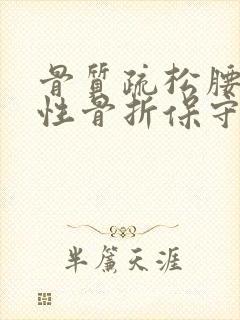 骨質疏松腰
性骨折保守
半簾天涯